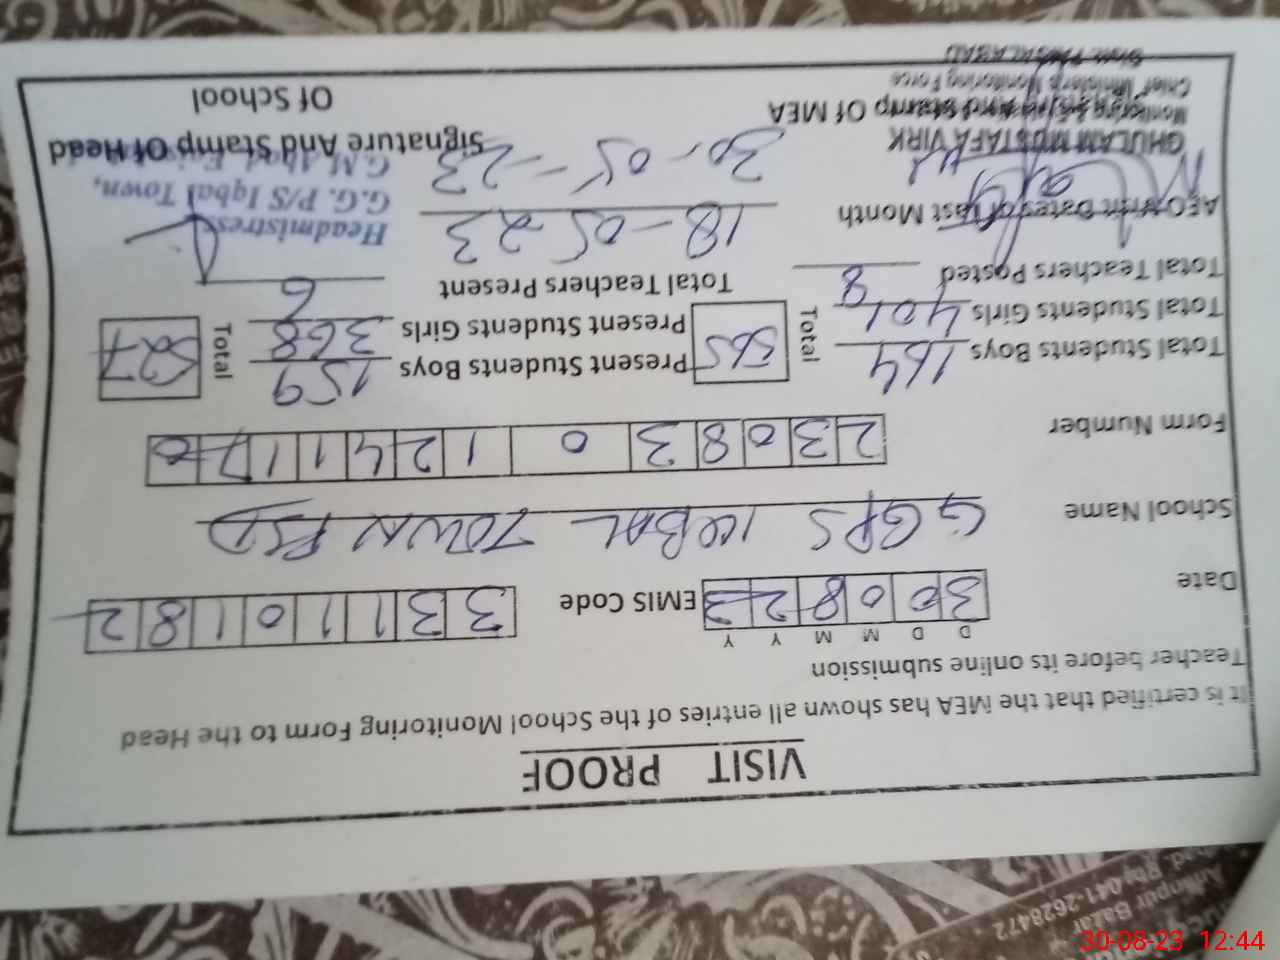 VISIT PROOF
It is certified that the MEA has shown all entries of the School Monitoring Form to the Head
Teacher before its online submission
D D M M Y Y
Date 30 08 23 EMIS Code 33110182
School Name GGPS IQBAL TOWN FSD
Form Number 23083012411170
Total Students Boys 164 Total 565 Present Students Boys 159 Total 527
Total Students Girls 401 Present Students Girls 368
Total Teachers Posted 8 Total Teachers Present 6
AEO Visit Dates of Last Month 18-05-23
30-05-23
Headmistress
G.G. P/S Iqbal Town,
GHULAM MUSTAFA VIRK
Monitoring
Signature And Stamp Of MEA
Chief Minister's Monitoring Force
Signature And Stamp Of Head
Of School
Bazar
Ph: 041-2628472
30-08-23 12:44